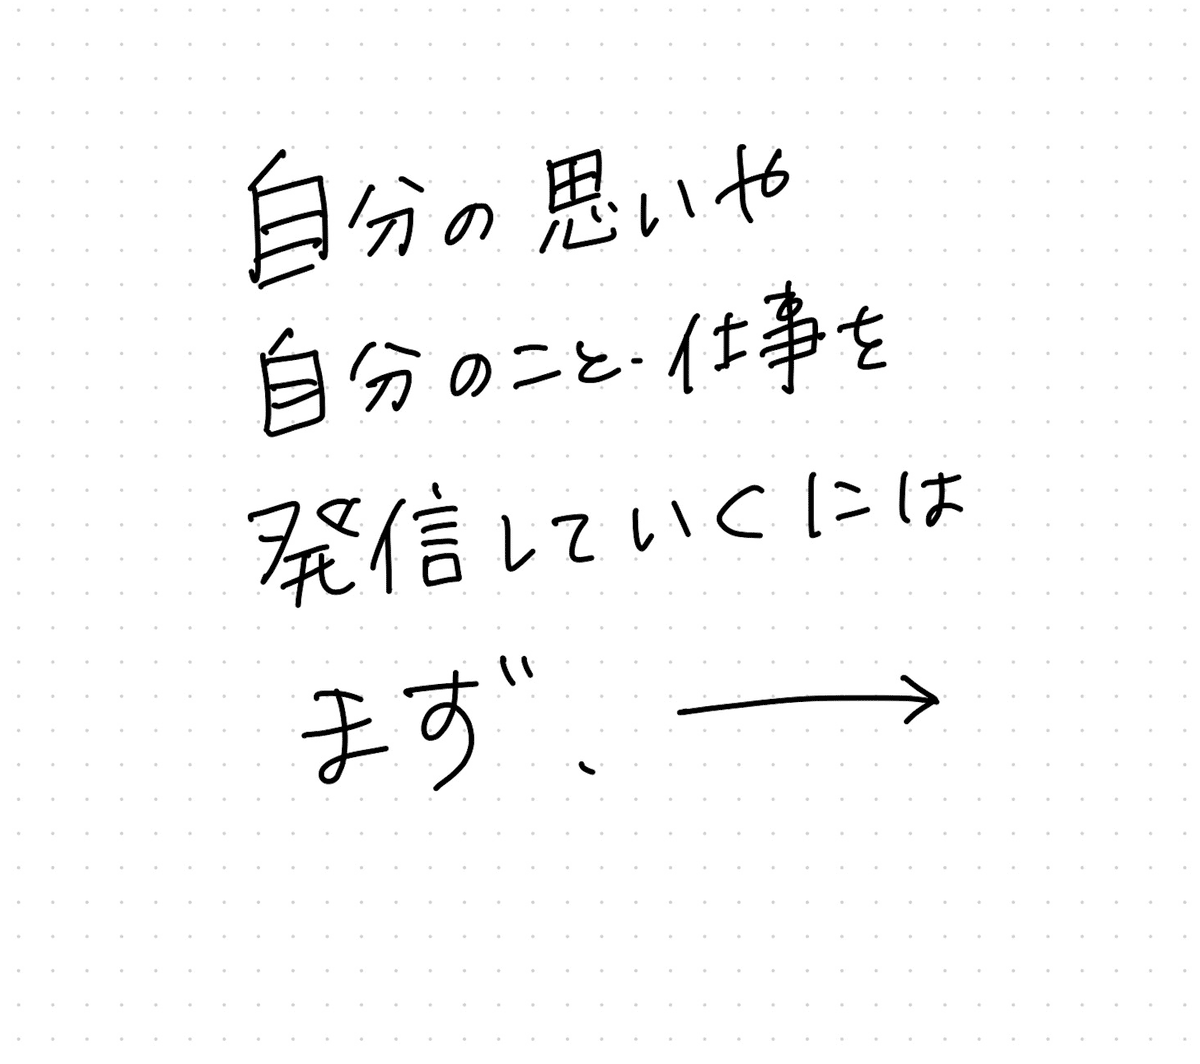 自分の思いや
自分のこと・仕事を
発信していくには
まず、→